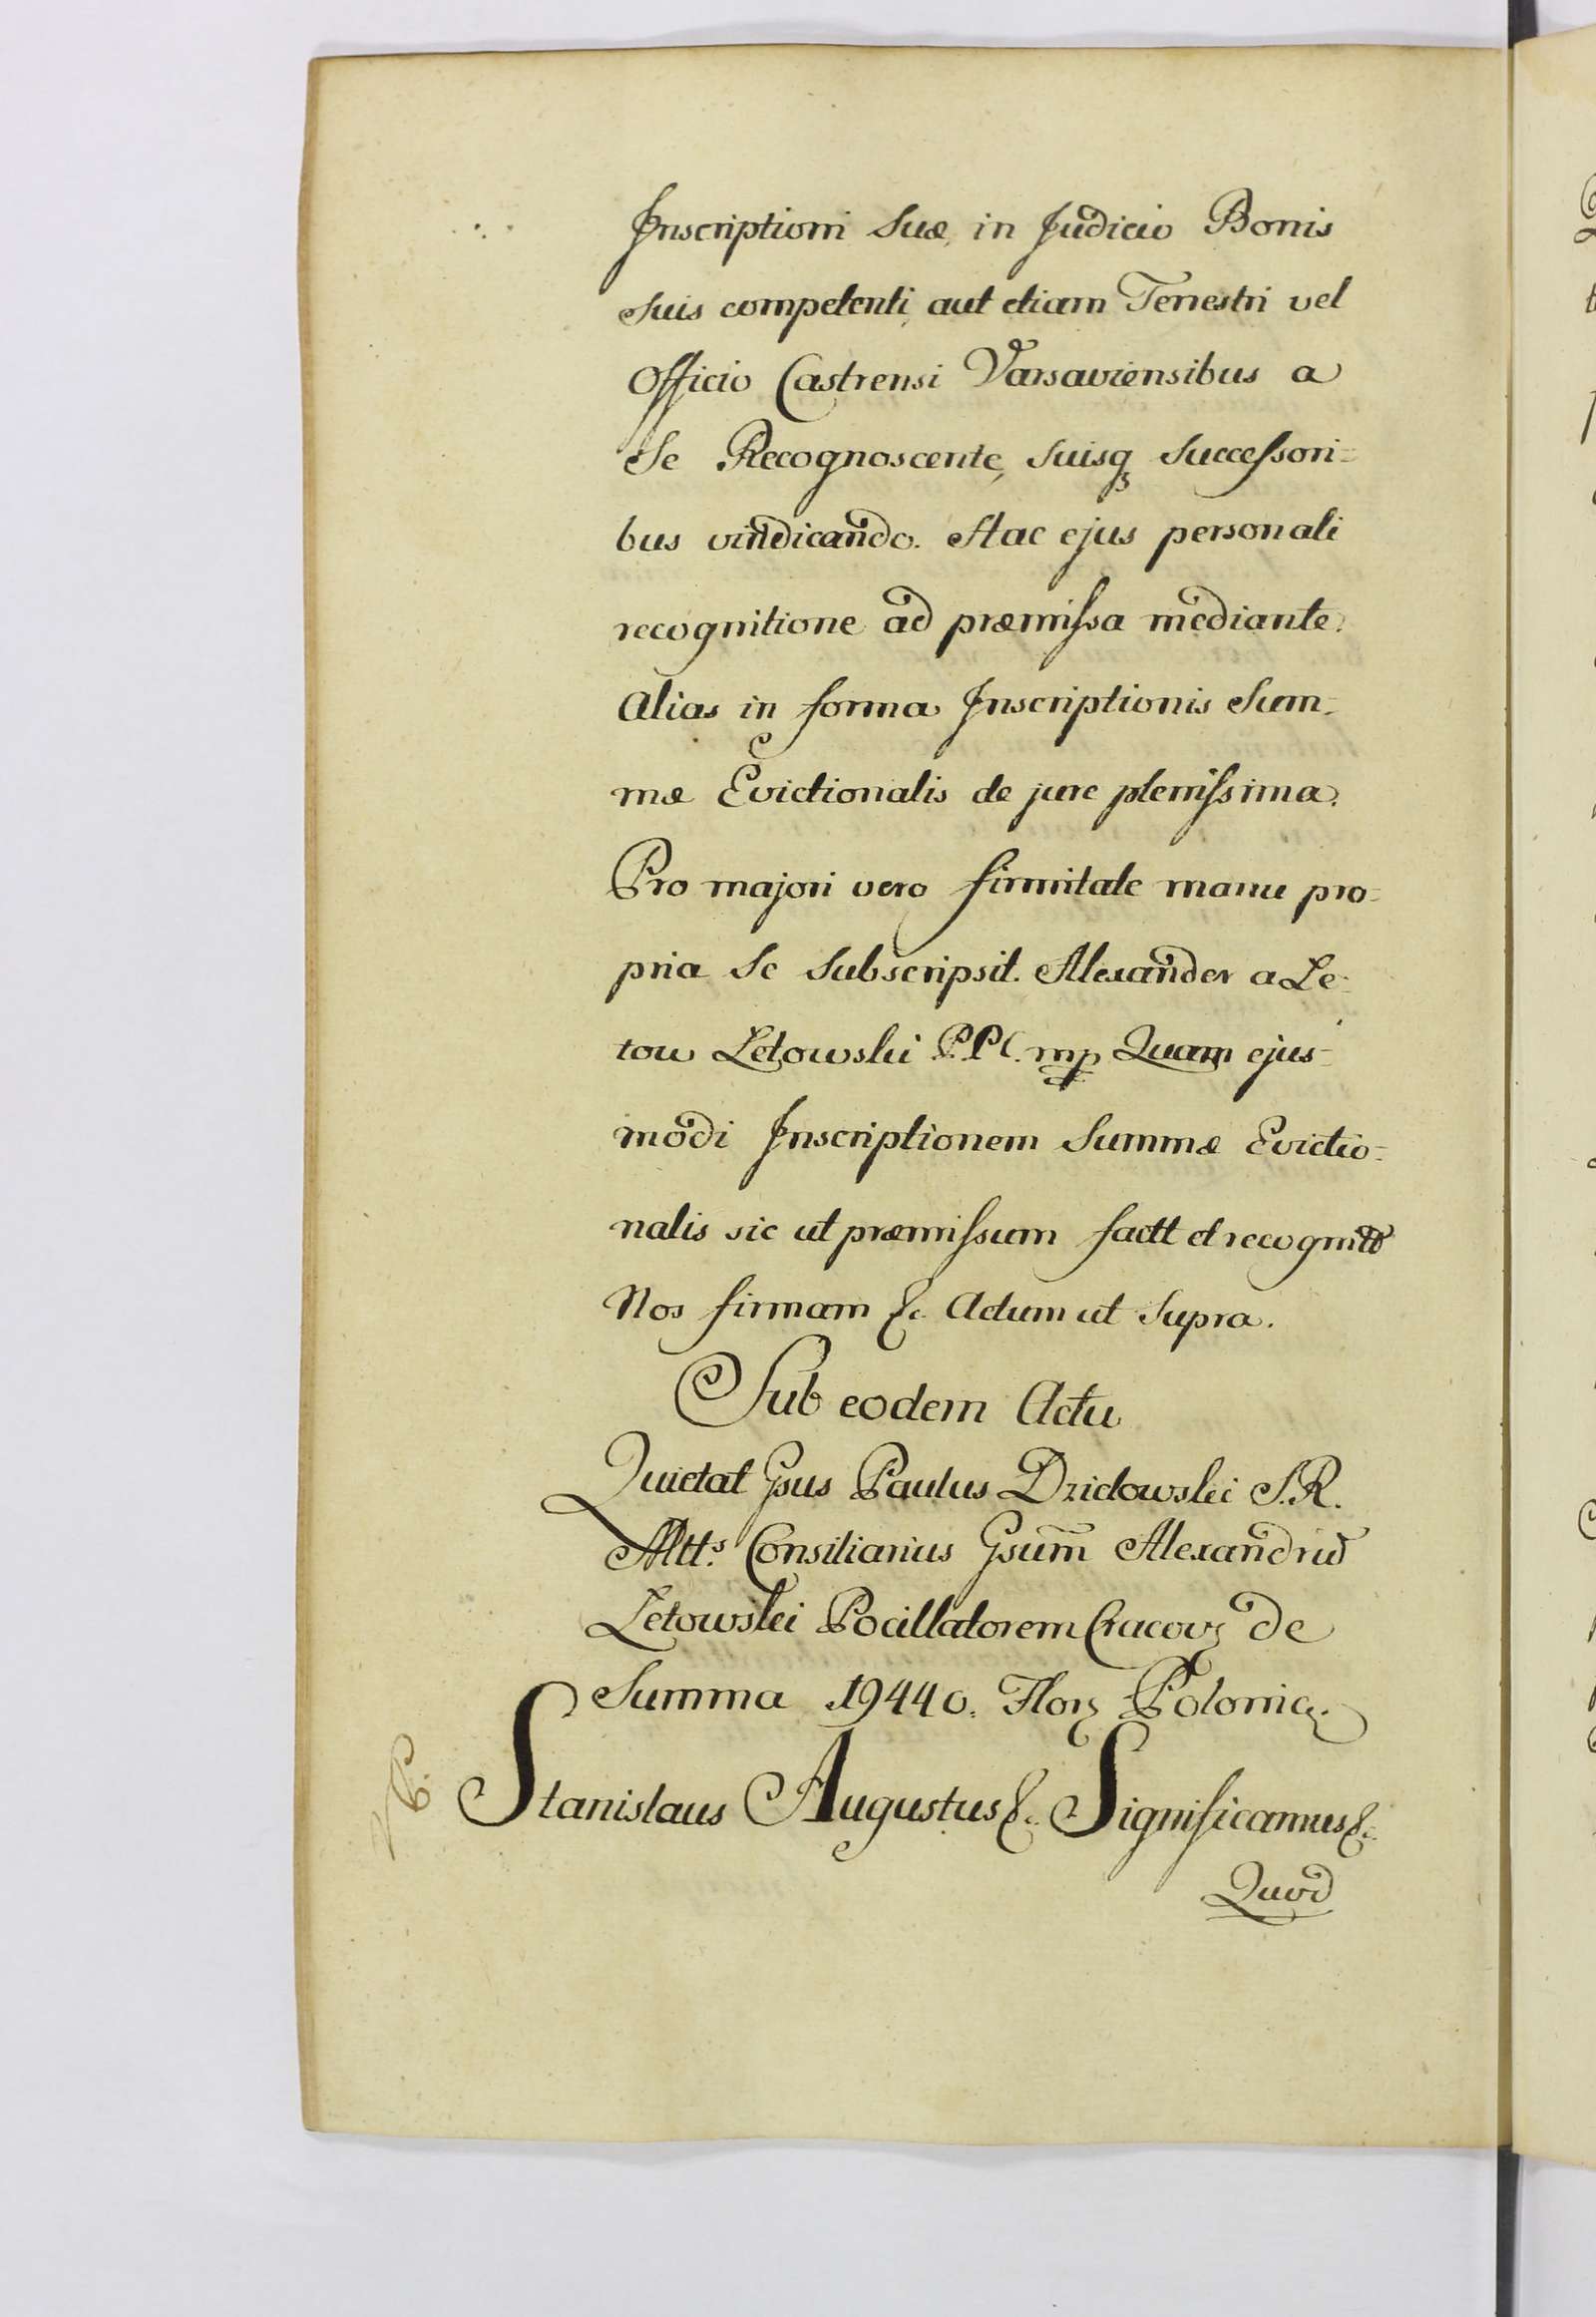 Inscriptioni Suæ, in Judicio Bonis
suis competenti, aut etiam Terrestri vel
Officio Castrensi Varsaviensibus a
Se Recognoscente, suisq₃ Successori=
bus vindicando. Hac ejus personali
recognitione ad præmissa mediante.
Alias in forma Inscriptionis Sum=
mæ Evictionalis de jure plenissima.
Pro majori vero firmitate manu pro=
pria Se Subscripsit. Alexander a Le=
tow Letowski P.P.C. mp Quam ejus=
modi Inscriptionem Summæ Evictio=
nalis sic ut præmissum factt et recognitt
Nos firmam &c. Actum ut Supra.
Sub eodem Actu
Quietat Gsus Paulus Dzidowski S.R.
Mtt.s Consiliarius Gsum̃ Alexandrũ
Letowski Pocillatorem Cracov₃ de
Summa 19440. Flor₃ Polonic₃.
Stanislaus Augustus &c. Significamus &c.
Quod